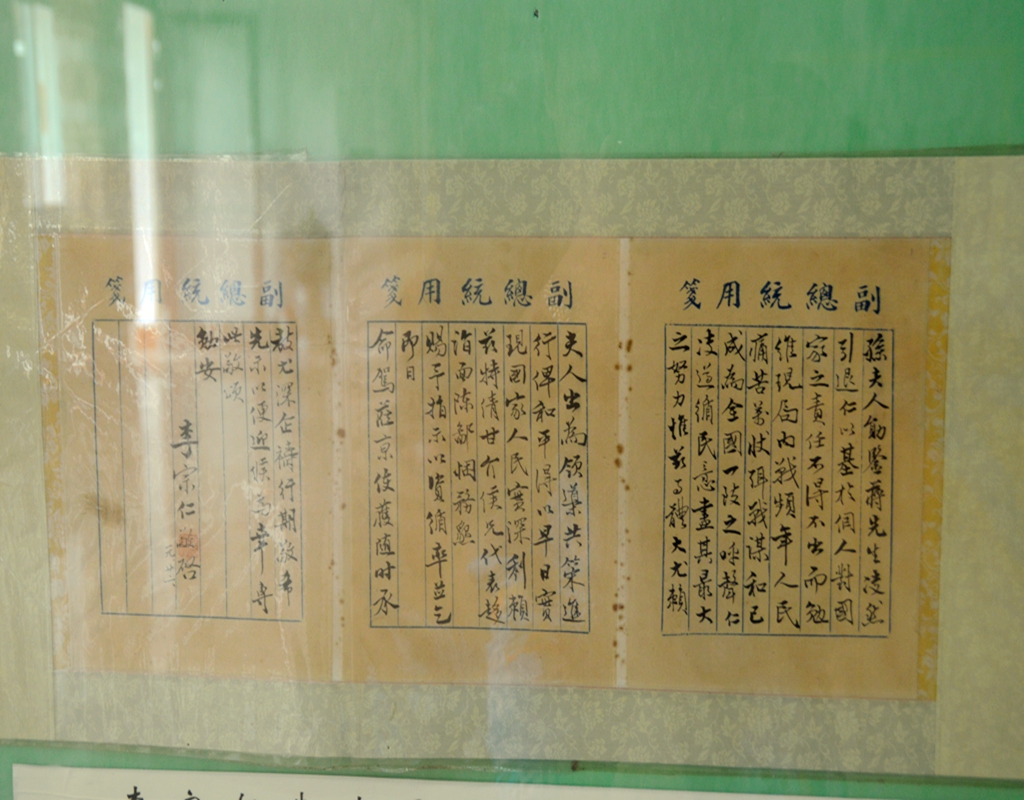 副總統用箋
孫夫人勛鑒蔣先生凌然
引退仁以基於個人對國
家之責任不得不出而勉
維現局內戰頻年人民
痛苦萬狀弭戰謀和已
成為全國一致之呼聲仁
凌道循民意盡其最大
之努力惟茲事體大尤賴
副總統用箋
夫人出為領導共策進
行俾和平得以早日實
現國家人民實深利賴
茲特倩甘介侯兄代表趨
詣面陳鄙悃務懇
賜予指示以資循率並乞
即日
命駕蒞京俾獲隨時承
副總統用箋
教尤深企禱行期敬希
先示以便迎候為幸專
此敬頌
勉安
李宗仁敬啓